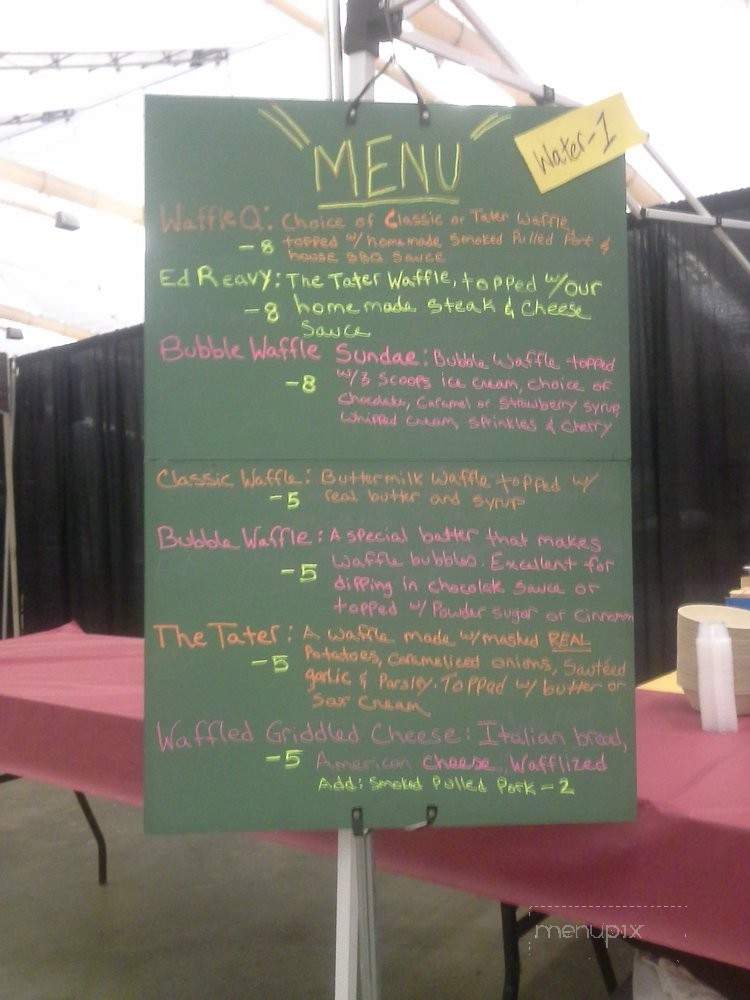 MENU
Water-1
Waffle Q: Choice of Classic or Tater Waffle,
-8 topped w/ homemade Smoked Pulled Pork &
house BBQ Sauce
Ed Reavy: The Tater Waffle, topped w/our
-8 homemade steak & Cheese
Sauce
Bubble Waffle Sundae: Bubble Waffle topped
-8 w/3 Scoops ice cream, choice of
Chocolate, Caramel or Strawberry syrup,
Whipped Cream, sprinkles & Cherry
Classic Waffle: Buttermilk Waffle topped w/
-5 real butter and syrup
Bubble Waffle: A special batter that makes
-5 Waffle bubbles. Excellent for
dipping in chocolate sauce or
topped w/ Powder sugar or Cinnamon
The Tater: A Waffle made w/mashed REAL
-5 Potatoes, Caramelized onions, Sautéed
garlic & Parsley. Topped w/ butter or
Sour Cream
Waffled Griddled Cheese: Italian bread,
-5 American Cheese, Wafflized
Add: Smoked Pulled Pork - 2
menupix